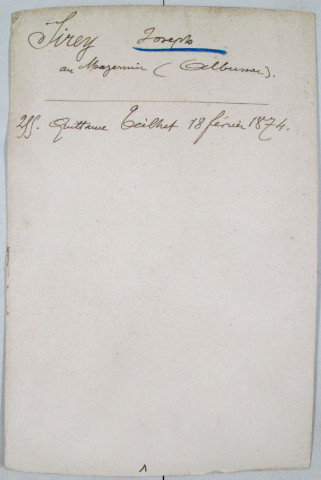 Sirey Joseph
au Mazernir (Albussac).
255. Quittance Teilhet 18 février 1874.
1